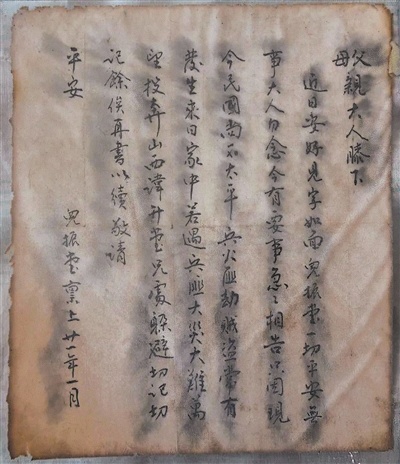 父母親大人膝下
近日安好見字如面兒振堂一切平安無
事大人勿念今有要事急々相告只因現
今民國尚不太平兵火匪劫賊盜常有
發生來回家中若遇兵匪大災大難萬
望投奔山西譚升堂兄處躲避切記切
記餘俟再書以續敬請
平安
兒振堂稟上廿一年一月